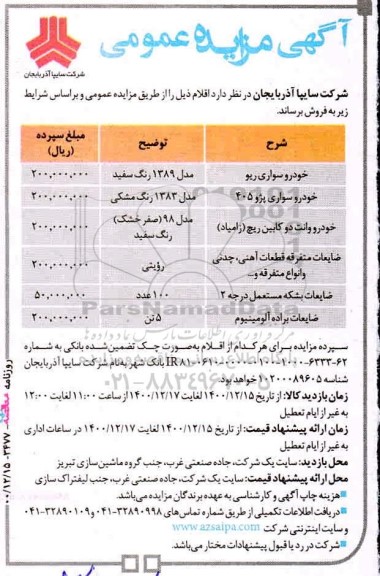 آگهی مزایده عمومی
شرکت سایپا آذربایجان
شرکت سایپا آذربایجان در نظر دارد اقلام ذیل را از طریق مزایده عمومی و براساس شرایط
زیر به فروش برساند.
شرح توضیح مبلغ سپرده (ریال)
خودرو سواری ریو مدل ۱۳۸۹ رنگ سفید ۲۰۰,۰۰۰,۰۰۰
خودرو سواری پژو ۴۰۵ مدل ۱۳۸۳ رنگ مشکی ۲۰۰,۰۰۰,۰۰۰
خودرو وانت دو کابین ریچ (زامیاد) مدل ۹۸ (صفر خشک) رنگ سفید ۲۰۰,۰۰۰,۰۰۰
ضایعات متفرقه قطعات آهنی، چدنی وانواع متفرقه و... رؤیتی ۲۰۰,۰۰۰,۰۰۰
ضایعات بشکه مستعمل درجه ۲ ۱۰۰ عدد ۵۰,۰۰۰,۰۰۰
ضایعات براده آلومینیوم ۵ تن ۲۰۰,۰۰۰,۰۰۰
سپرده مزایده برای هر کدام از اقلام به‌صورت چک تضمین‌شده بانکی به شماره
بانک شهر به‌نام شرکت سایپا آذربایجان
شناسه خواهد بود.
زمان بازدید کالا: از تاریخ ۱۴۰۰/۱۲/۱۵ لغایت ۱۴۰۰/۱۲/۱۷ از ساعت ۱۱:۰۰ لغایت ۱۲:۰۰
به غیر از ایام تعطیل
زمان ارائه پیشنهاد قیمت: از تاریخ ۱۴۰۰/۱۲/۱۵ لغایت ۱۴۰۰/۱۲/۱۷ در ساعات اداری
به غیر از ایام تعطیل
محل بازدید: سایت یک شرکت، جاده صنعتی غرب، جنب گروه ماشین‌سازی تبریز
محل ارائه پیشنهاد قیمت: سایت یک شرکت، جاده صنعتی غرب، جنب لیفتراک سازی
هزینه چاپ آگهی و کارشناسی به عهده برندگان مزایده می‌باشد.
دریافت اطلاعات تکمیلی از طریق شماره تماس‌های ۰۴۱-۳۲۸۹۰۹۹۸ و ۰۴۱-۳۲۸۹۰۱۰۹
و سایت اینترنتی شرکت www.azsaipa.com
شرکت در رد یا قبول پیشنهادات مختار می‌باشد.
روزنامه
۰۰/۱۲/۱۵-۳۴۷۷
ParsNamadData
۰۲۱-۸۸۳۴۹۶۷۰